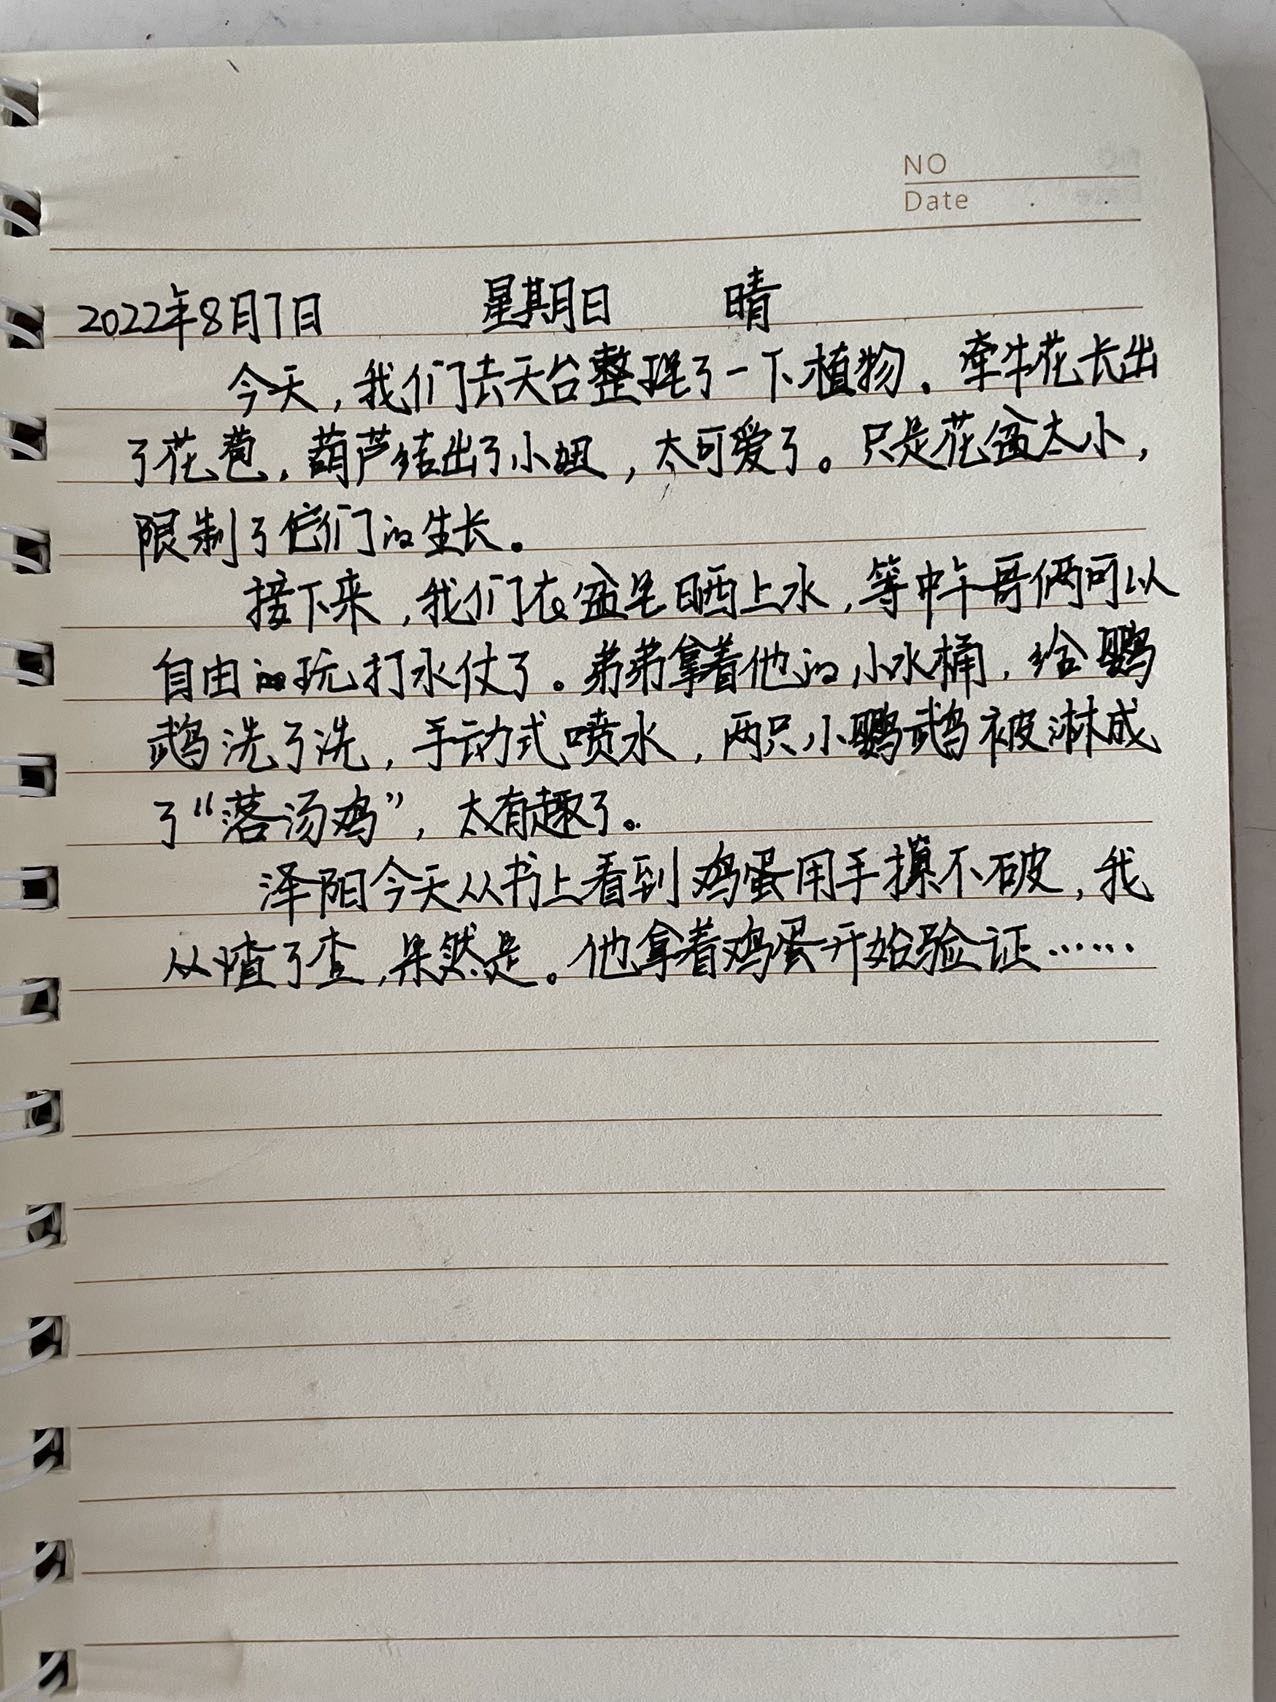 NO
Date
2022年8月7日 星期日 晴
今天,我们去天台整理了一下植物。牵牛花长出
了花苞,葫芦结出了小妞,太可爱了。只是花盆太小,
限制了它们的生长。
接下来,我们在盆里晒上水,等中午哥俩可以
自由的玩打水仗了。弟弟拿着他的小水桶,给鹦
鹉洗了洗,手动式喷水,两只小鹦鹉被淋成
了“落汤鸡”,太有趣了。
泽阳今天从书上看到鸡蛋用手摸不破,我
从查了查,果然是。他拿着鸡蛋开始验证……